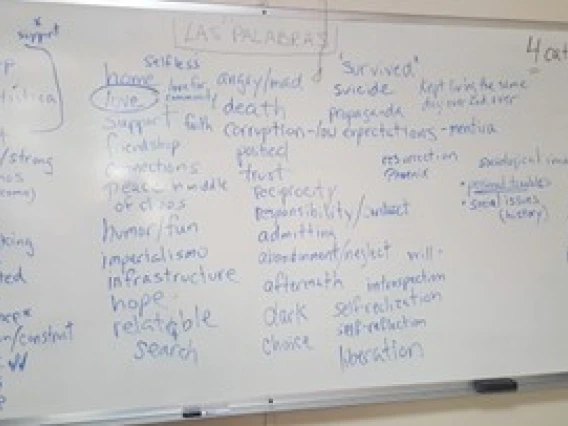 * support
LAS "PALABRAS"
4 cat
selfless
home
love
love for community
support
faith
friendship
connections
peace in middle
of chaos
humor/fun
imperialismo
infrastructure
hope
relatable
search
angry/mad
death
corruption - low expectations - mentira
pushed
trust
reciprocity
responsibility/contract
admitting
abandonment/neglect
aftermath
dark
choice
"Survived"
suicide
propaganda
kept living the same
day over and over
resurrection
Phoenix
will
introspection
self-realization
self-reflection
liberation
sociological ima
• personal troubles
• social issues
(history)
/strong
king
ted
n/construct